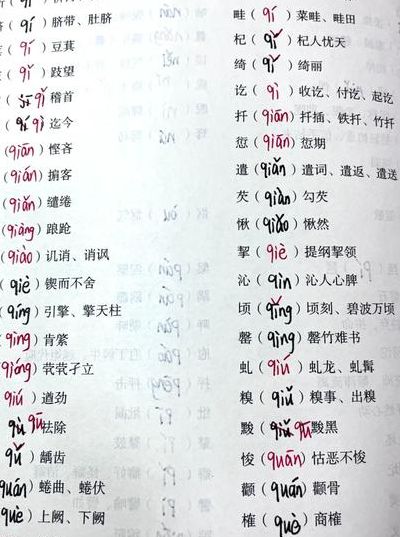 ( qí ) 脐带、肚脐
( qí ) 豆萁
( qǐ ) 跂望
( jī qǐ 稽首
( qǐ qì ) 迄今
( qiān ) 悭吝
( qián ) 掮客
( qiǎn ) 缱绻
( qiàng ) 踉跄
( qiào ) 讥诮、诮讽
( qiè ) 锲而不舍
( qíng ) 引擎、擎天柱
( qìng ) 肯綮
( qióng ) 茕茕孑立
( qiú ) 遒劲
qū 祛除
( qǔ ) 龋齿
quán ) 蜷曲、蜷伏
què ) 上阕、下阕
畦 ( qí ) 菜畦、畦田
杞 ( qǐ ) 杞人忧天
绮 ( qǐ ) 绮丽
讫 ( qì ) 收讫、付讫、起讫
扦 ( qiān ) 扦插、铁扦、竹扦
愆 ( qiān ) 愆期
遣 ( qiǎn ) 遣词、遣返、遣送
芡 ( qiàn ) 勾芡
愀 ( qiǎo ) 愀然
挈 ( qiè ) 提纲挈领
沁 ( qìn ) 沁人心脾
顷 ( qǐng ) 顷刻、碧波万顷
罄 ( qìng ) 罄竹难书
虬 ( qiú ) 虬龙、虬髯
糗 ( qiǔ ) 糗事、出糗
黢 ( qū 黢黑
悛 ( quān ) 怙恶不悛
颧 ( quán ) 颧骨
榷 ( què ) 商榷